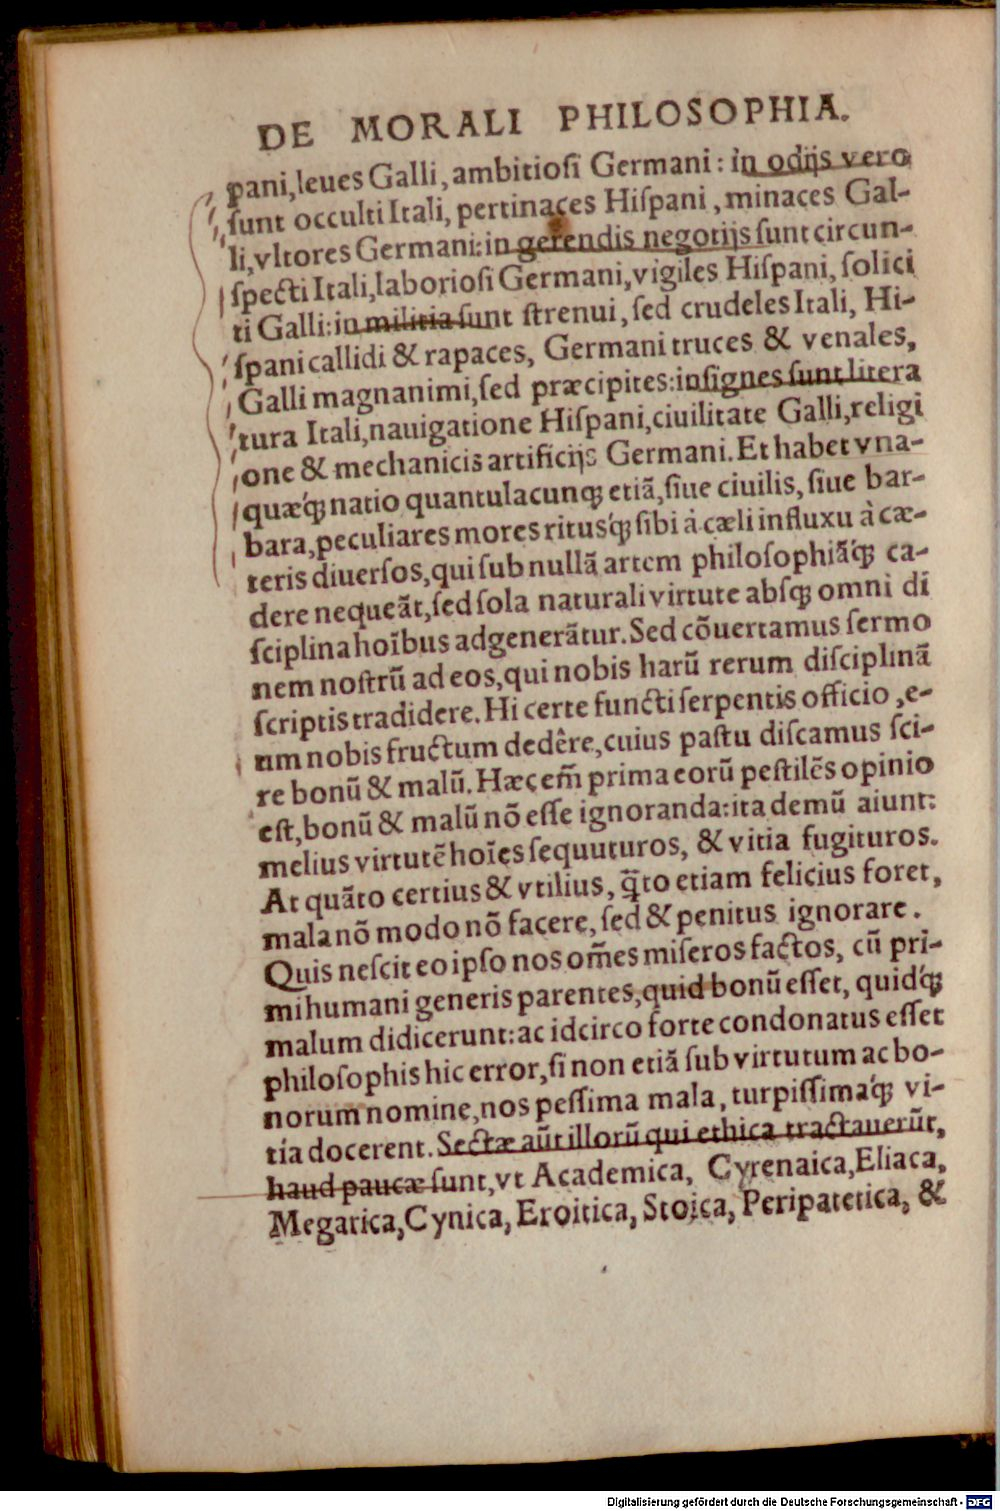 DE MORALI PHILOSOPHIA.
pani, leues Galli, ambitiosi Germani: in odijs vero
sunt occulti Itali, pertinaces Hispani, minaces Gal-
li, vltores Germani: in gerendis negotijs sunt circun-
specti Itali, laboriosi Germani, vigiles Hispani, solici
ti Galli: in militia sunt strenui, sed crudeles Itali, Hi-
spani callidi & rapaces, Germani truces & venales,
Galli magnanimi, sed præcipites: insignes sunt litera
tura Itali, nauigatione Hispani, ciuilitate Galli, religi
one & mechanicis artificijs Germani. Et habet vna-
quæq́; natio quantulacunq; etiã, siue ciuilis, siue bar-
bara, peculiares mores ritusq́; sibi à cæli influxu à cæ-
teris diuersos, qui sub nullã artem philosophiãq́; ca-
dere nequeãt, sed sola naturali virtute absq; omni di
sciplina hoĩbus adgenerãtur. Sed cõuertamus sermo
nem nostrũ ad eos, qui nobis harũ rerum disciplinã
scriptis tradidere. Hi certe functi serpentis officio, e-
um nobis fructum dedêre, cuius pastu discamus sci-
re bonũ & malũ. Hæc em̃ prima eorũ pestilẽs opinio
est, bonũ & malũ nõ esse ignoranda: ita demũ aiunt:
melius virtutẽ hoĩes sequuturos, & vitia fugituros.
At quãto certius & vtilius, q̃to etiam felicius foret,
mala nõ modo nõ facere, sed & penitus ignorare.
Quis nescit eo ipso nos om̃es miseros factos, cũ pri-
mi humani generis parentes, quid bonũ esset, quidq́;
malum didicerunt: ac idcirco forte condonatus esset
philosophis hic error, si non etiã sub virtutum ac bo-
norum nomine, nos pessima mala, turpissimaq́; vi-
tia docerent. Sectæ aũt illorũ qui ethica tractauerũt,
haud paucæ sunt, vt Academica, Cyrenaica, Eliaca,
Megarica, Cynica, Eroitica, Stoica, Peripatetica, &
Digitalisierung gefördert durch die Deutsche Forschungsgemeinschaft - DFG